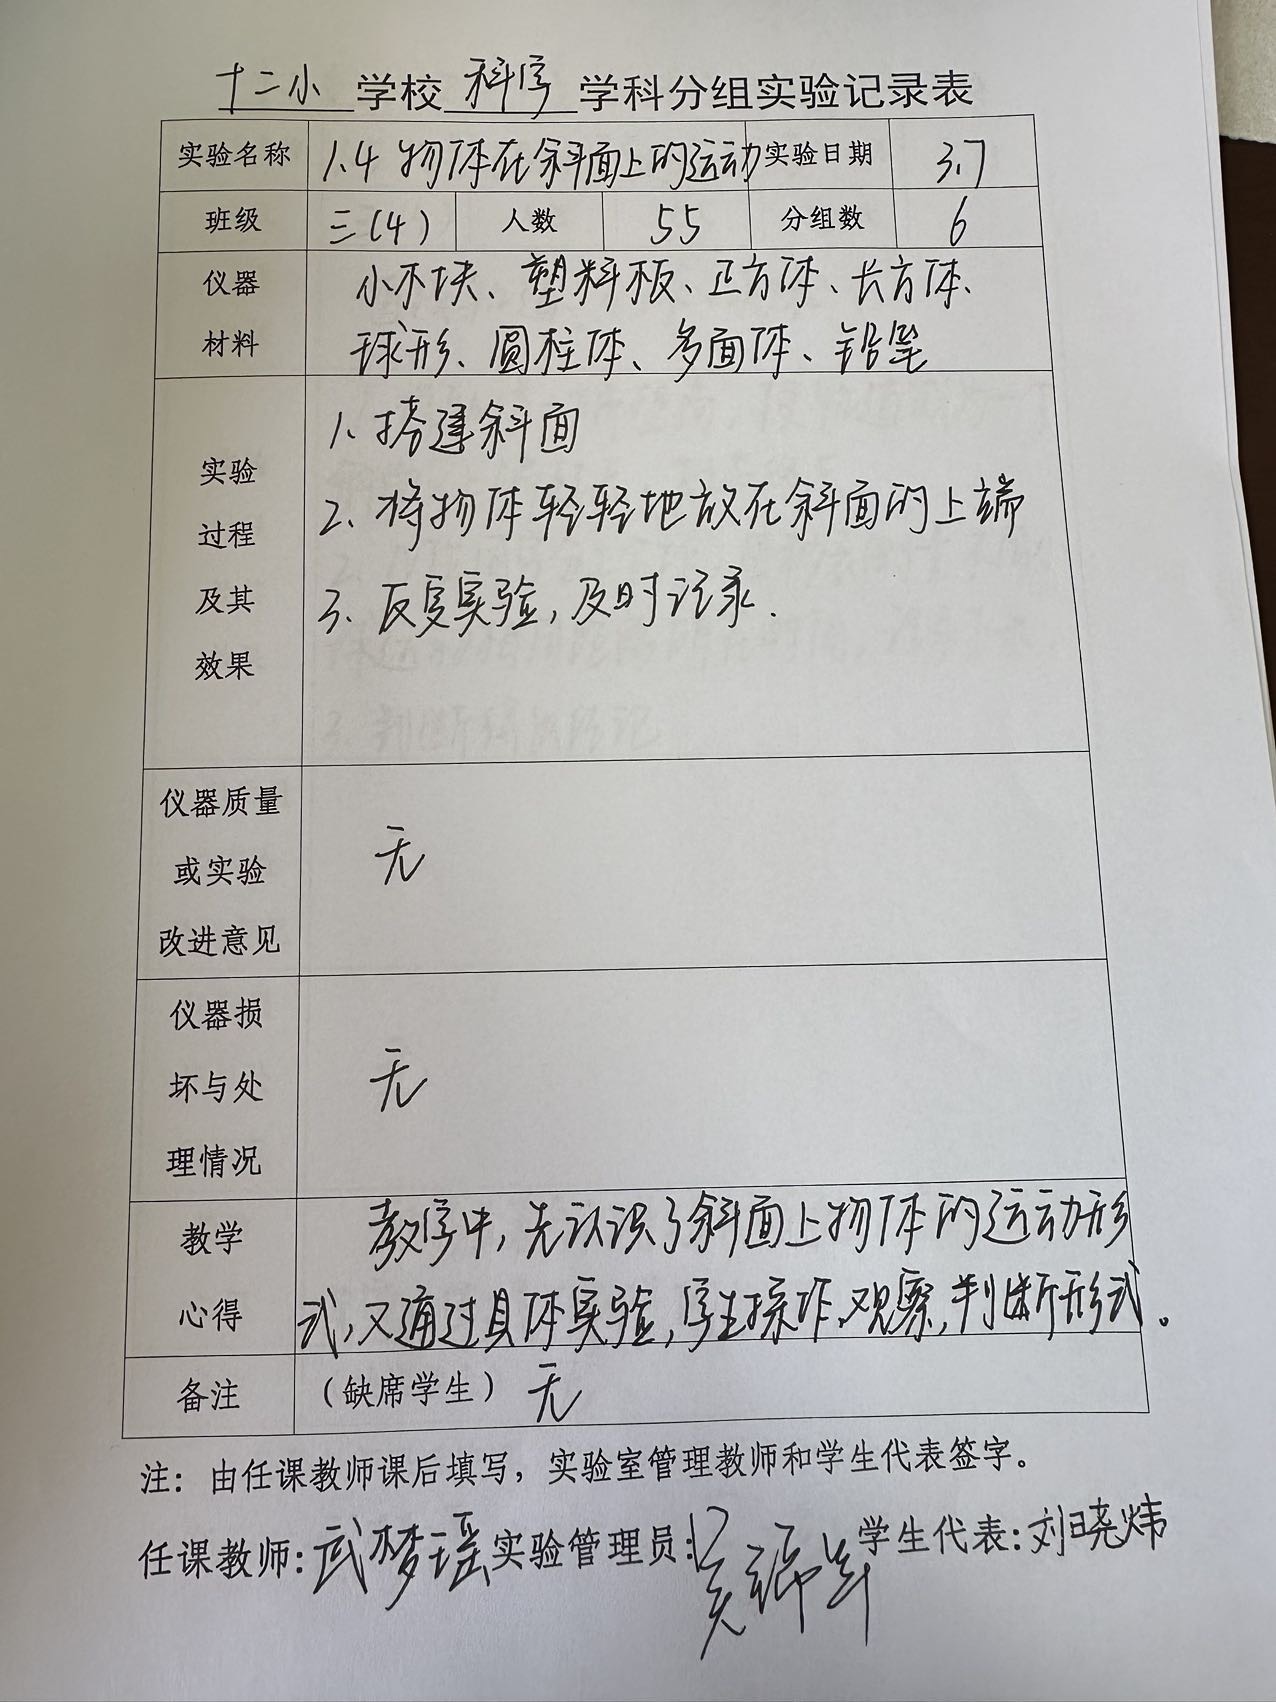 十二小学校科学学科分组实验记录表
实验名称 1.4 物体在斜面上的运动 实验日期 3.7
班级 三(4) 人数 55 分组数 6
仪器 小木块、塑料板、正方体、长方体、
材料 球形、圆柱体、多面体、铅笔
1、搭建斜面
实验
2、将物体轻轻地放在斜面的上端
过程
及其
3、反复实验,及时记录.
效果
仪器质量
或实验 无
改进意见
仪器损
坏与处 无
理情况
教学 教学中,先认识了斜面上物体的运动形
心得 式,又通过具体实验,学生操作,观察,判断形式。
备注 (缺席学生) 无
注：由任课教师课后填写，实验室管理教师和学生代表签字。
任课教师:武梦瑶 实验管理员: 学生代表:刘晓炜